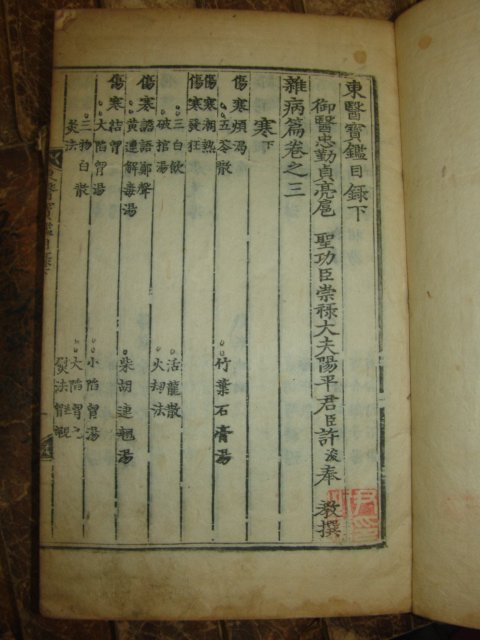 東醫寶鑑目錄下
御醫忠勤貞亮扈 聖功臣崇祿大夫陽平君臣許浚奉 敎撰
雜病篇卷之三
寒下
傷寒煩渴
五苓散 竹葉石膏湯
傷寒潮熱
傷寒發狂
三白飮 活龍散
破棺湯 火劫法
傷寒譫語鄭聲
黃連解毒湯 柴胡連翹湯
傷寒結胷
大陷胷湯 小陷胷湯
三物白散 大陷胷
灸法 熨法